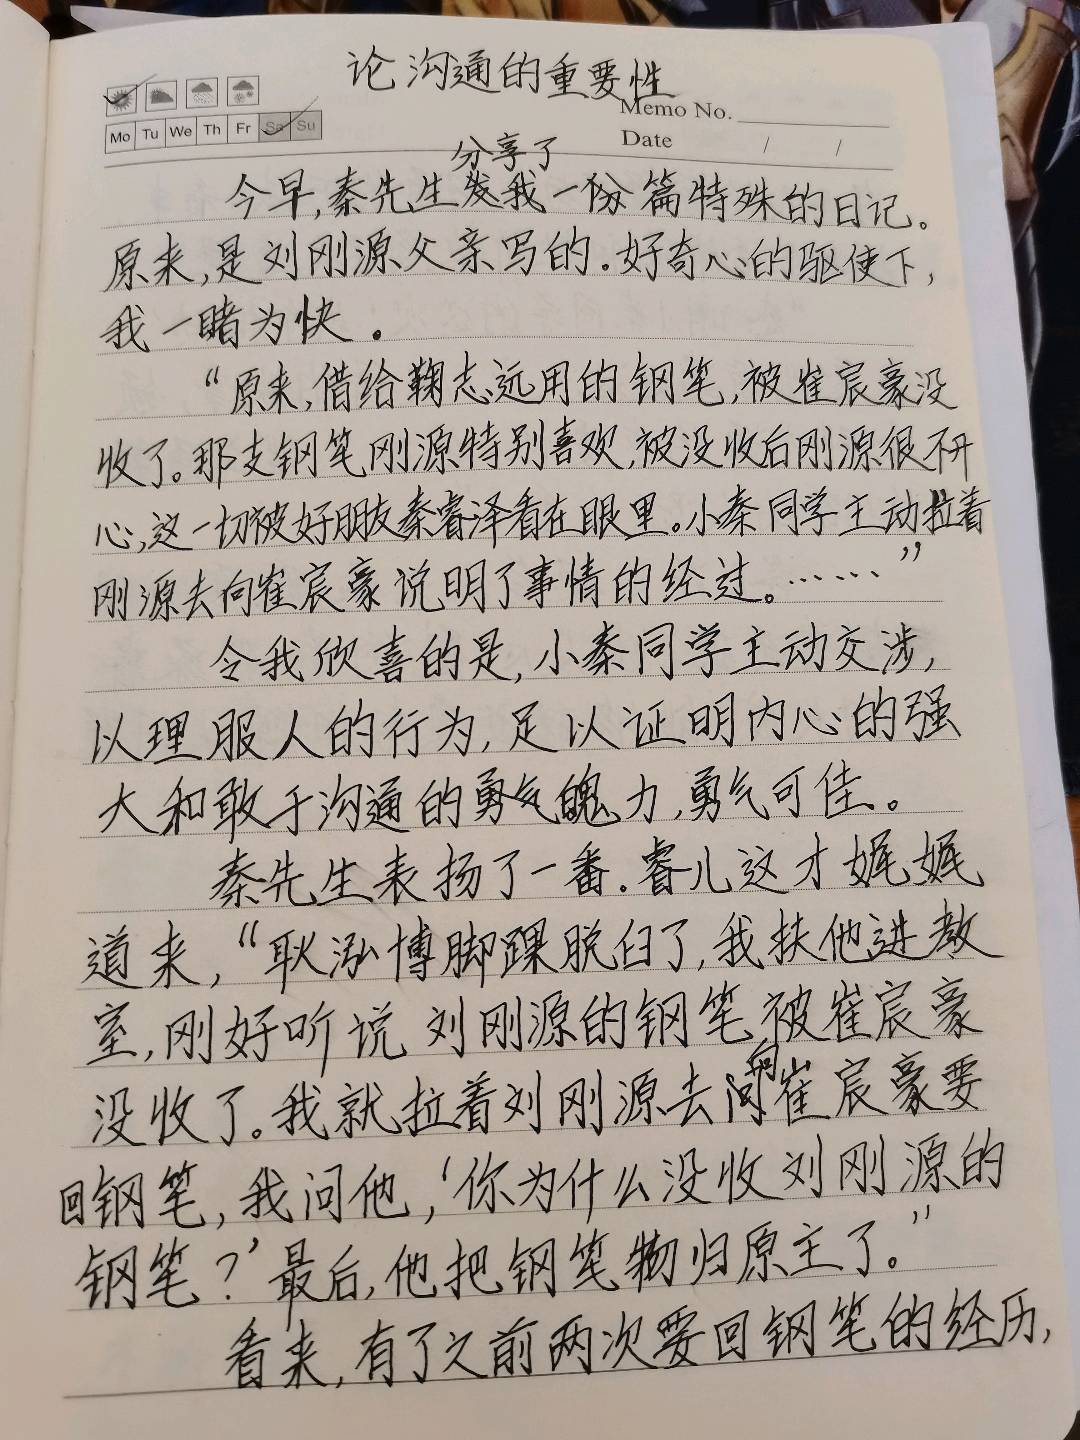 论沟通的重要性
Memo No.
Mo Tu We Th Fr Sa Su
Date / /
分享了
今早,秦先生发我一份篇特殊的日记。
原来,是刘刚源父亲写的.好奇心的驱使下,
我一睹为快.
“原来,借给鞠志远用的钢笔,被崔宸豪没
收了。那支钢笔刚源特别喜欢,被没收后刚源很不开
心,这一切被好朋友秦睿泽看在眼里。小秦同学主动拉着
刚源去向崔宸豪说明了事情的经过。……”
令我欣喜的是,小秦同学主动交涉,
以理服人的行为,足以证明内心的强
大和敢于沟通的勇气魄力,勇气可佳。
秦先生表扬了一番.睿儿这才娓娓
道来,“耿泓博脚踝脱臼了,我扶他进教
室,刚好听说刘刚源的钢笔被崔宸豪
没收了。我就拉着刘刚源去向崔宸豪要
回钢笔,我问他,‘你为什么没收刘刚源的
钢笔?’最后,他把钢笔物归原主了。”
看来,有了之前两次要回钢笔的经历,